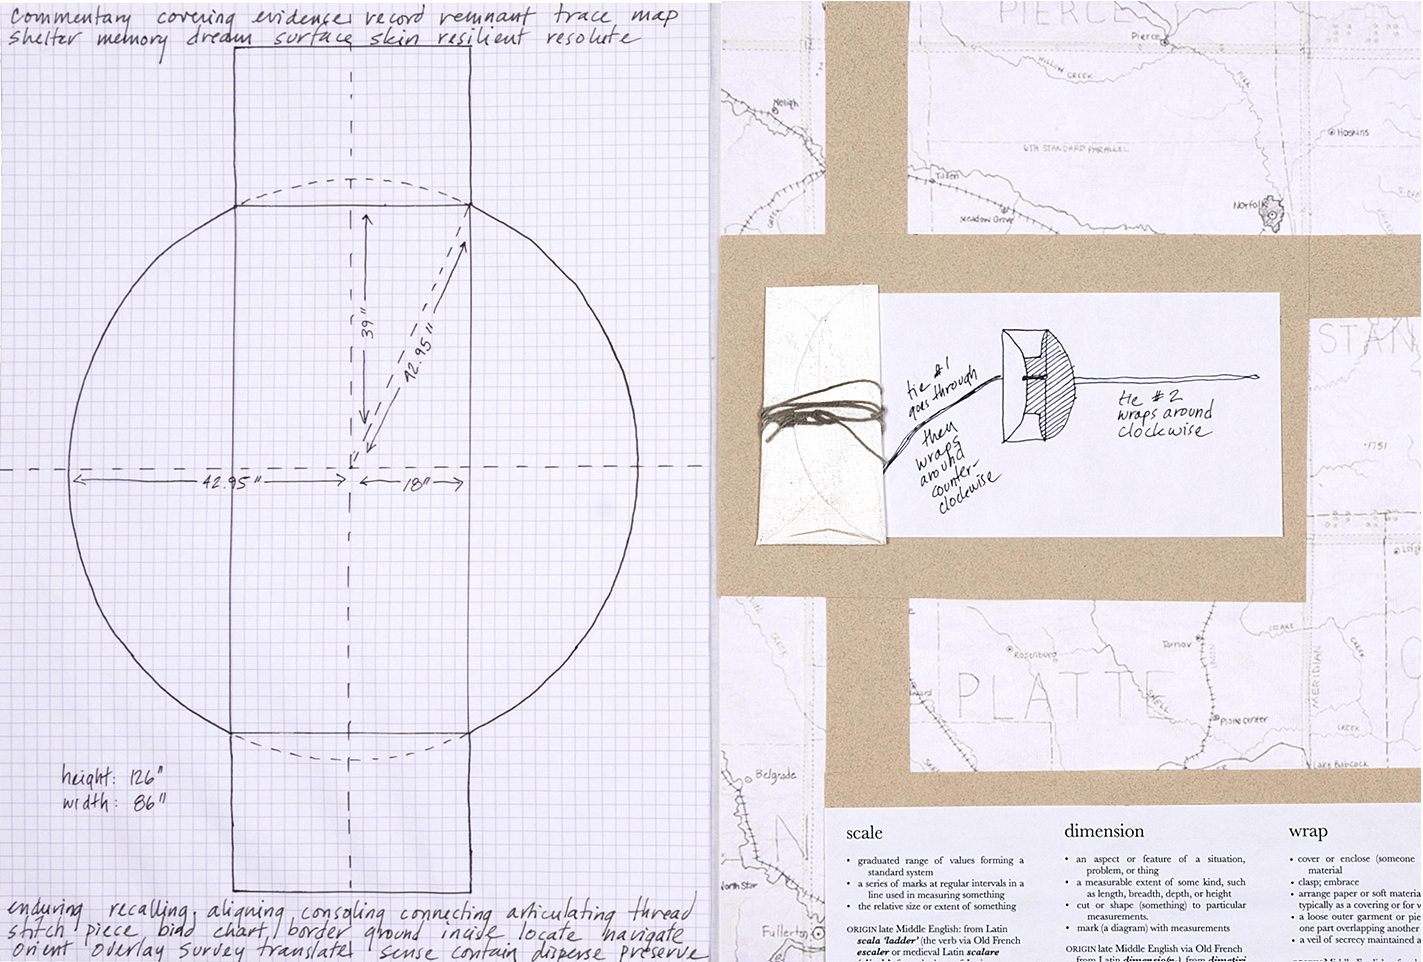 commentary covering evidence record remnant trace map
shelter memory dream surface skin resilient resolute
39"
42.95"
42.95"
18"
height: 126"
width: 86"
enduring recalling aligning consoling connecting articulating thread
stitch piece bind chart border ground incise locate navigate
orient overlay survey translate sense contain disperse preserve
PIERCE
Pierce
WILLOW
CREEK
FORK
Neligh
Hoskins
6TH STANDARD PARALLEL
Tilden
Meadow Grove
Norfolk
CREEK
STAN
tie #1
goes through
then
wraps
around
counter-
clockwise
tie #2
wraps around
clockwise
1751
Rosenburg
Tarnov
PLATTE
SHELL
Platte Center
MERIDIAN
CREEK
CREEK
Lake Babcock
Belgrade
North Star
Fullerton
N
scale
• graduated range of values forming a
standard system
• a series of marks at regular intervals in a
line used in measuring something
• the relative size or extent of something
ORIGIN late Middle English: from Latin
scala 'ladder' (the verb via Old French
escaler or medieval Latin scalare
dimension
• an aspect or feature of a situation,
problem, or thing
• a measurable extent of some kind, such
as length, breadth, depth, or height
• cut or shape (something) to particular
measurements.
• mark (a diagram) with measurements
ORIGIN late Middle English via Old French
from Latin
wrap
• cover or enclose (someone
material
• clasp; embrace
• arrange paper or soft materia
typically as a covering or for
• a loose outer garment or pie
one part overlapping another
• a veil of secrecy maintained a